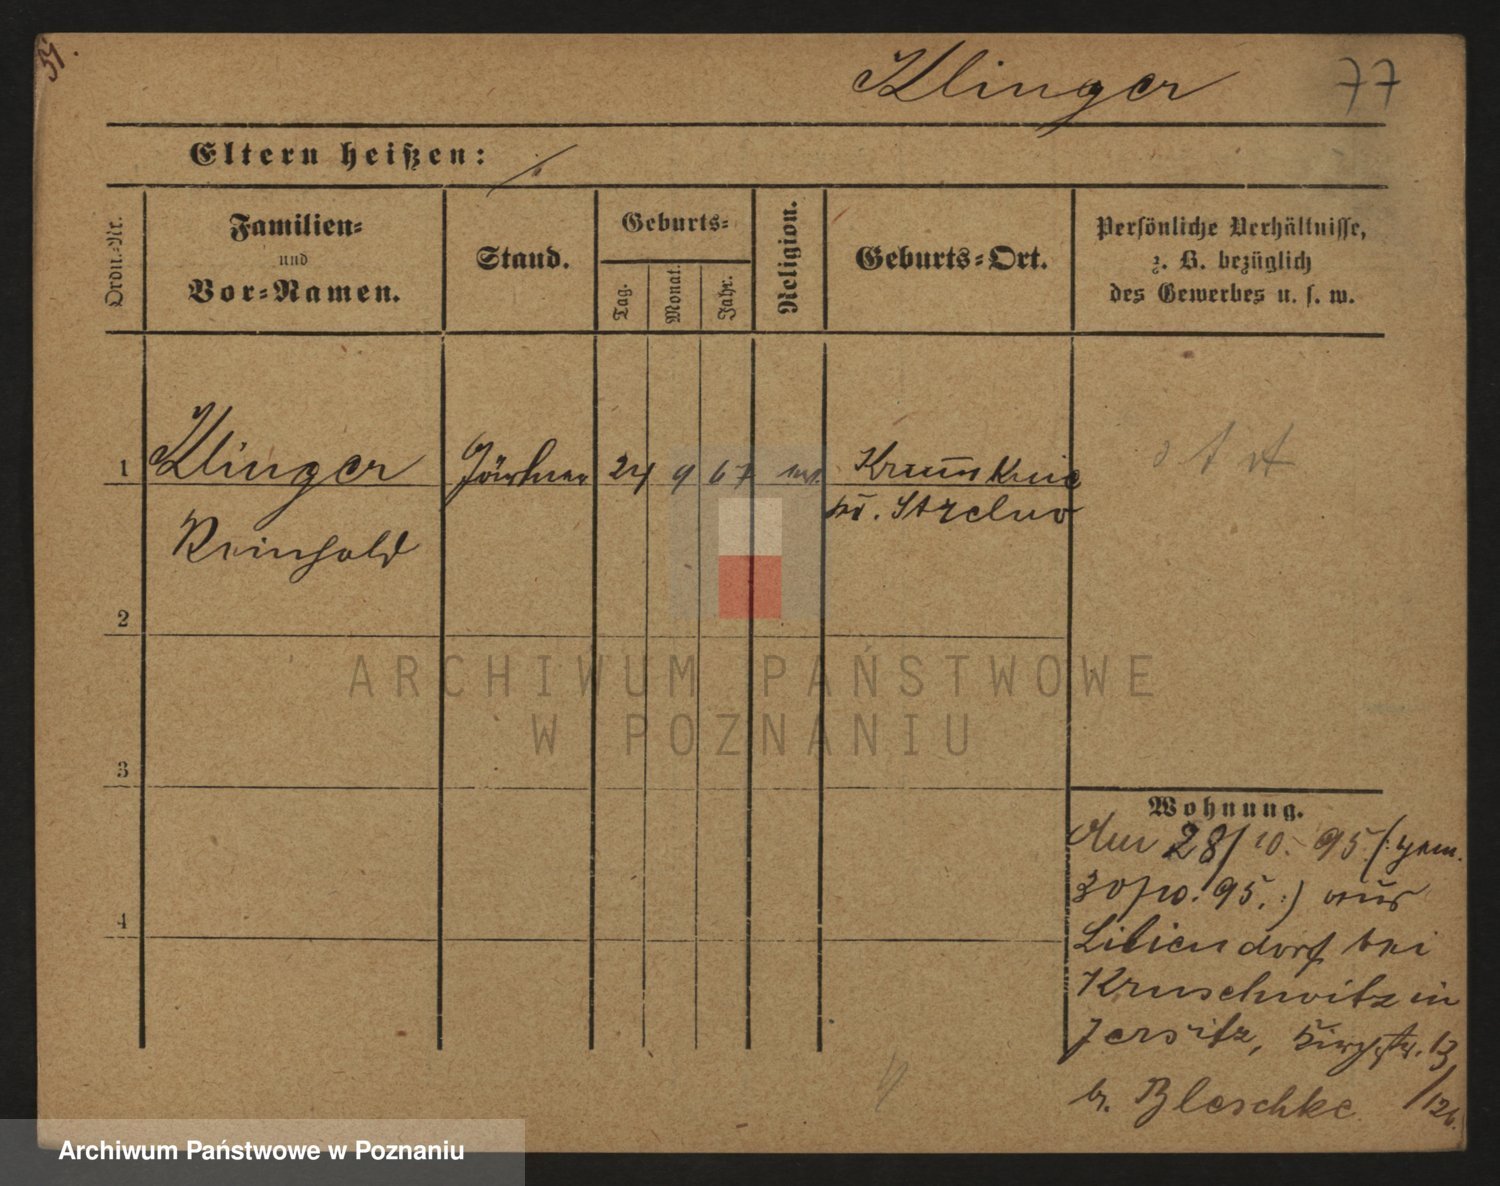 51.
Klinger 77
Eltern heißen: /.
Ordn.-Nr.
Familien-
und
Vor-Namen.
Stand.
Geburts-
Tag.
Monat.
Jahr.
Religion.
Geburts-Ort.
Persönliche Verhältnisse,
z. B. bezüglich
des Gewerbes u. s. w.
1 Klinger Gärtner 24 9 67 ev. Krumknie
Kr. Strelno
Reinhold
2
3
4
Wohnung.
Am 28/10. 95 (: gem.
30/10. 95. :) aus
Liliendorf bei
Kruschwitz in
Jersitz, Kirchstr. 13
b. Bleschke. /126.
ARCHIWUM PAŃSTWOWE
W POZNANIU
Archiwum Państwowe w Poznaniu